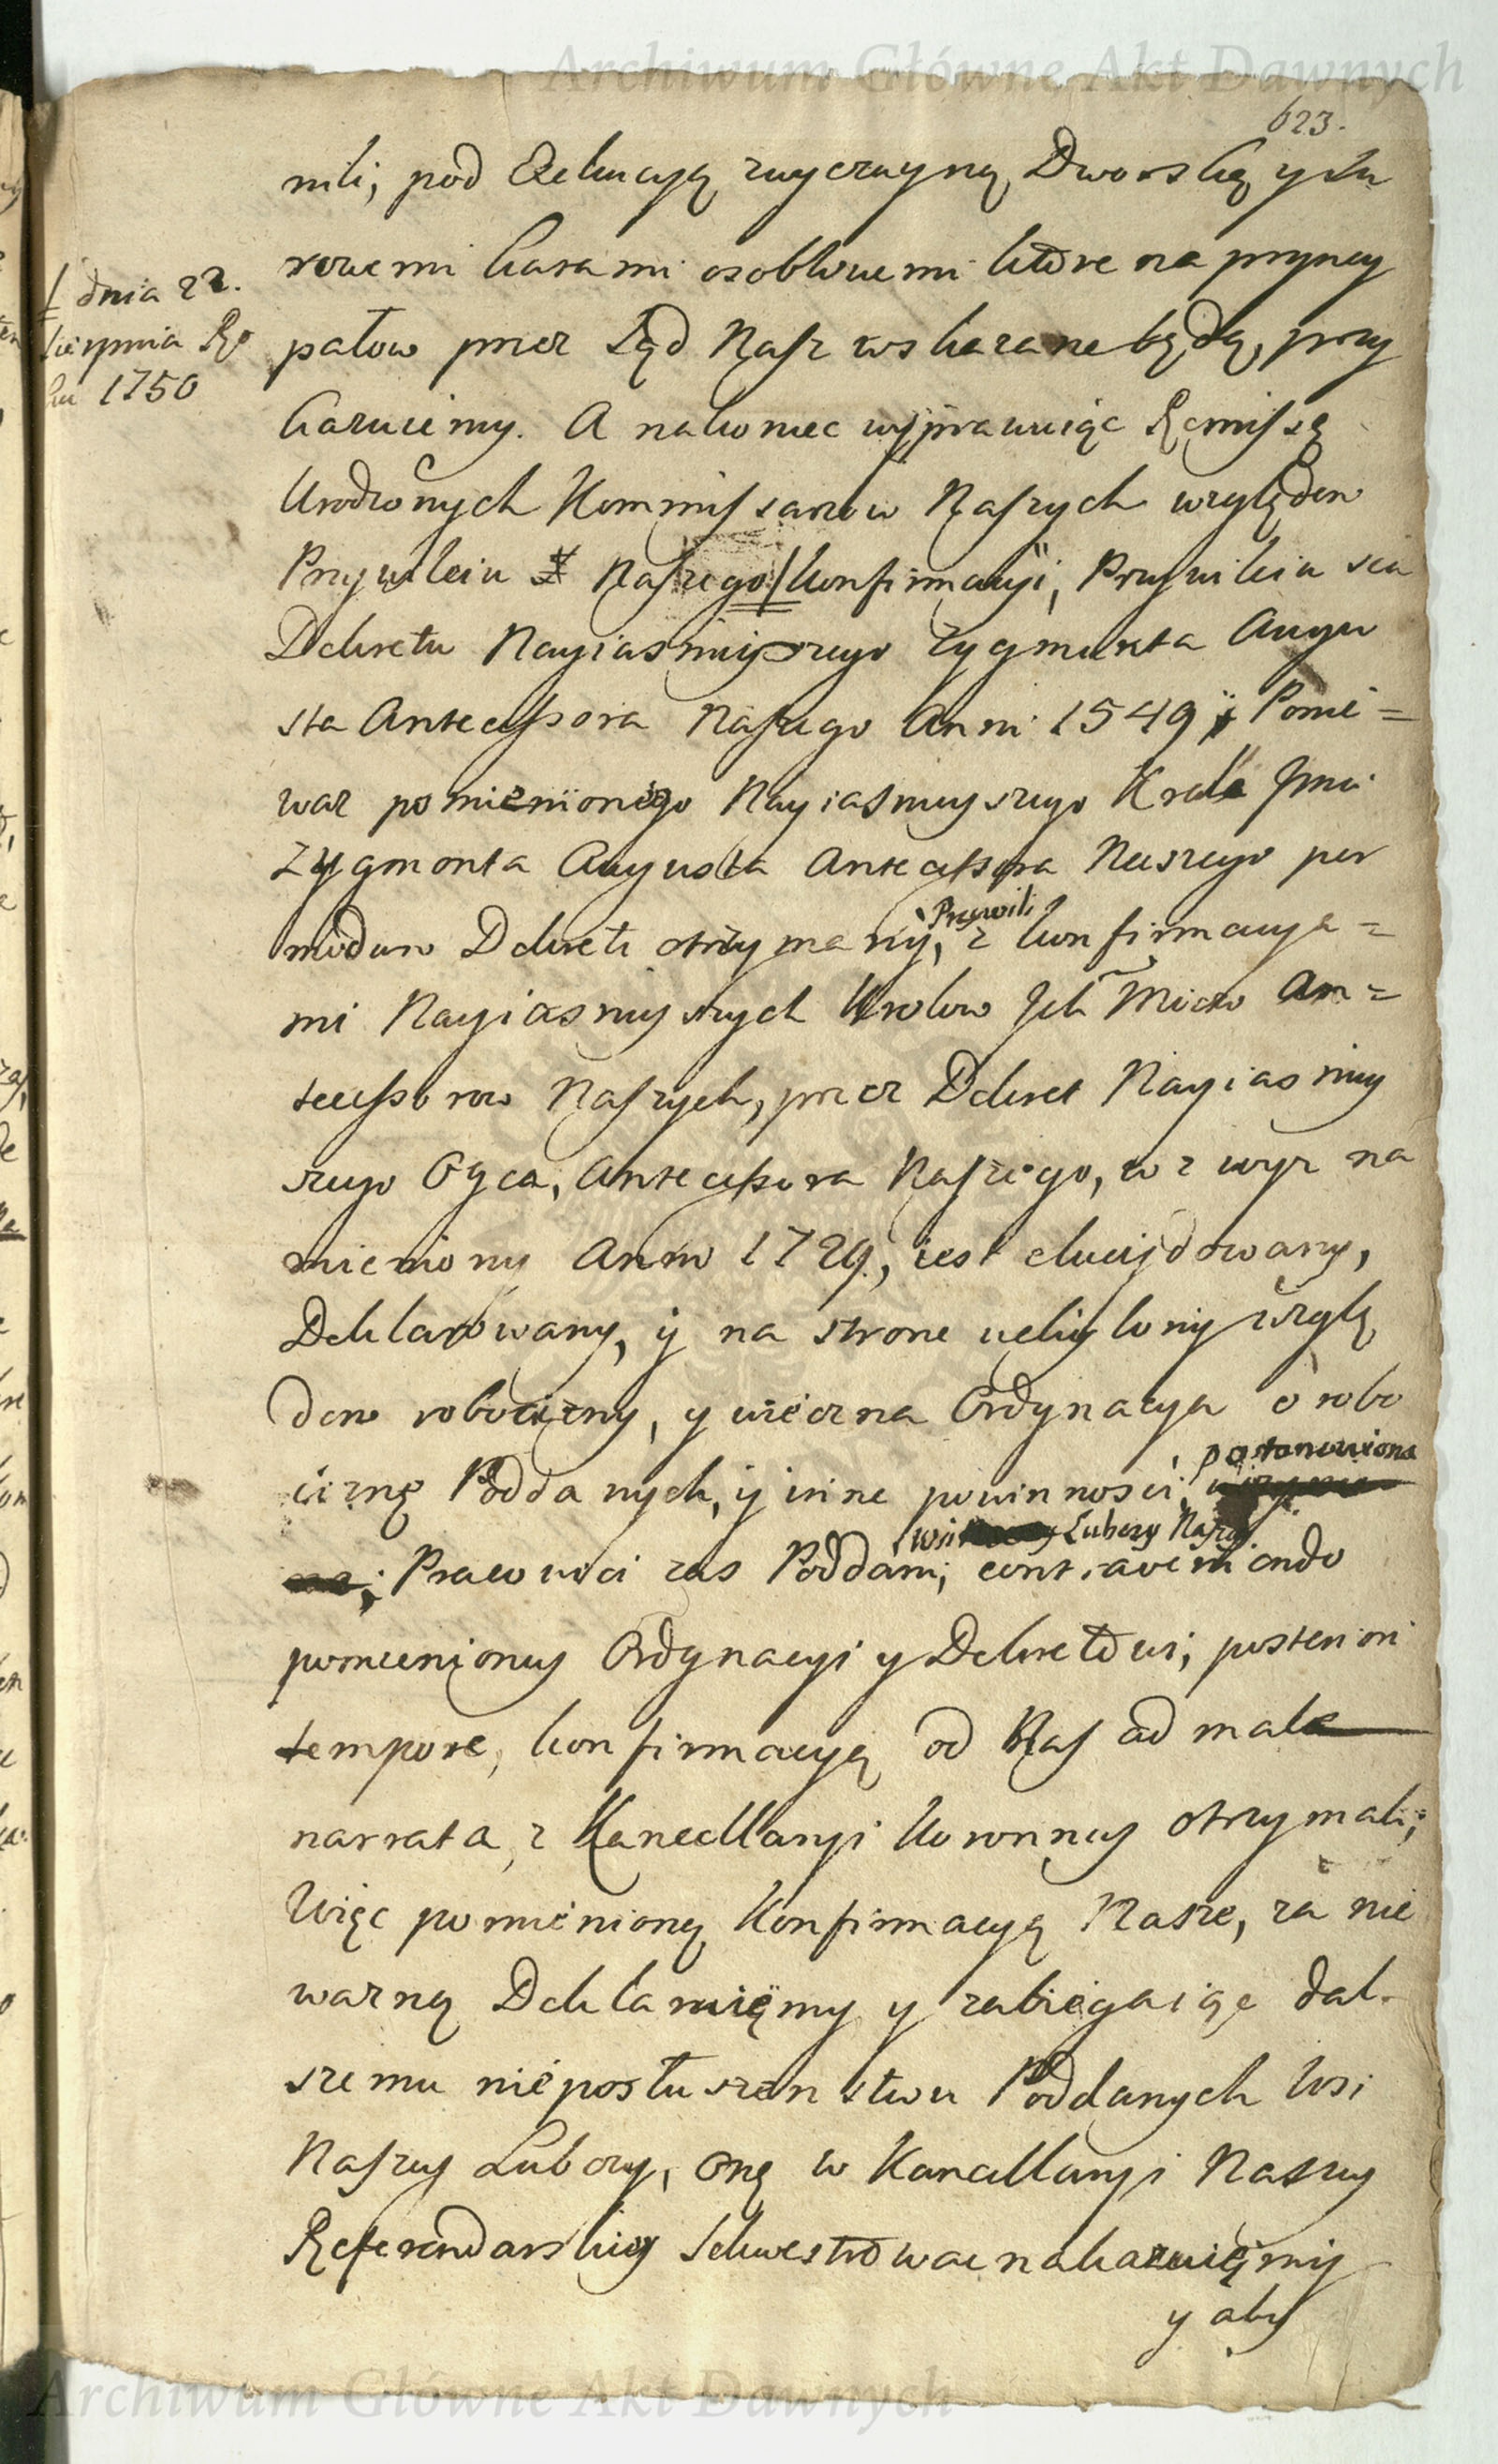 Archiwum Główne Akt Dawnych
623.
nili, pod Exekucyą zwyczayną Dworską y su
rowemi karami osobliwemi które na pryncy
/ dnia 22.
sierpnia Ro
ku 1750
pałow przez Sąd Nasz wskazane będą, przy
kazuiemy. A nakoniec wyprawuiąc Remissą
Urodzonych Kommissarzow Naszych względem
Przywileiu Naszego/ konfirmacyi, Przywileiu seu
Dekretu Nayiasnieyszego Zygmunta Augu
sta Antecessora Naszego Anni 1549 Ponie=
waz pomienionego Nayiasnieyszego Krola Jmci
Zygmonta Augusta Antecessora Naszego per
modum Dekreti otrzymany, Przywili z konfirmacya=
mi Nayiasnieyszych Krolow Ich Mciow An=
tecessorow Naszych, przez Dekret Nayiasniey
szego Oyca, Antecessora Naszego, w z wyz na
mieniony Anno 1729, iest elucydowany,
Deklarowany, y na strone uchylony wzglę
dem robocizny, y wieczna Ordynacya o robo
ciznę Poddanych, y inne powinnosci, postanowiona
; Pracowici zas Poddani, wsi Luboczy Naszey contraveniendo
pomienioney Ordynacyi y Dekretowi, posteriori
tempore, konfirmacyą od Nas ad male
narrata, z Kancellaryi Koronney otrzymali;
Więc pomienioną Konfirmacyą Nasze, za nie
wazną Deklaruięmy y zabiegaiąc dal-
szemu nieposłuszenstwu Poddanych Wsi
Naszey Luboczy, onę w Kancellaryi Naszey
Referendarskiey Sekwestrowac nakazuięmy
y aby
Archiwum Główne Akt Dawnych